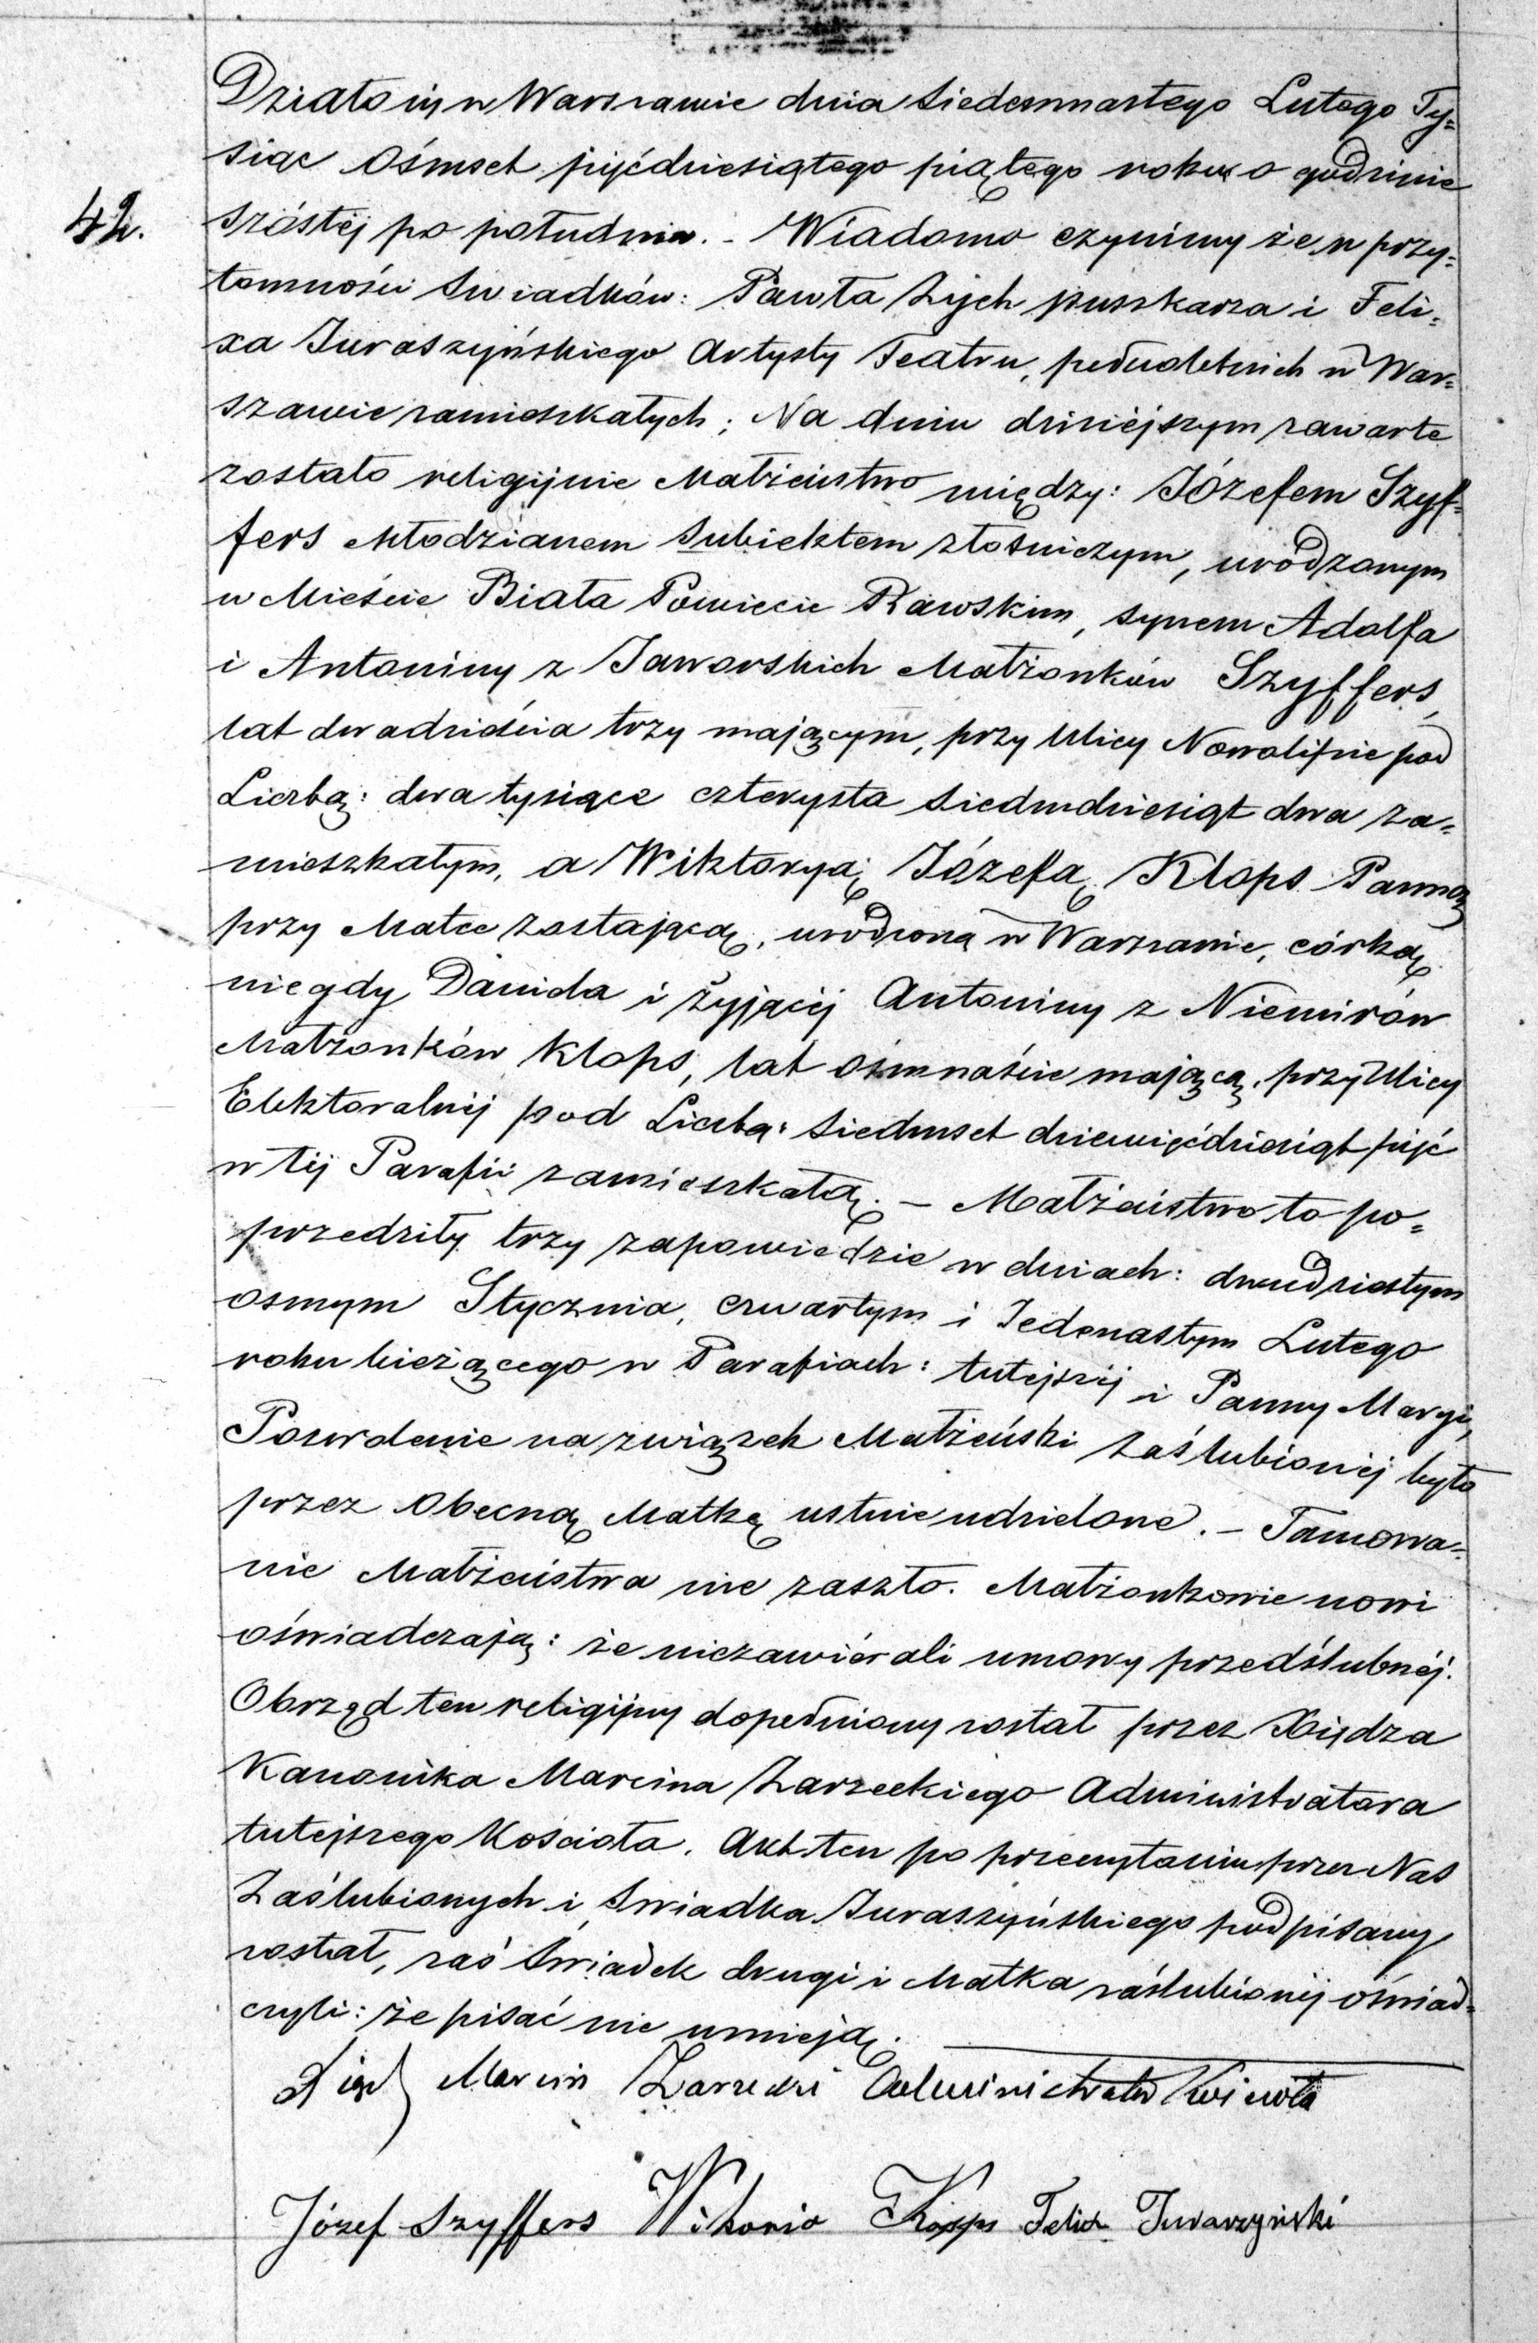 Działo się w Warszawie dnia Siedemnastego Lutego Ty=
siąc Ośmset pięćdziesiątego piątego roku o godzinie
42.
szóstéj po południu. - Wiadomo czynimy że w przy=
tomności Swiadków: Pawła Zych puszkarza i Feli=
xa Juraszyńskiego Artysty Teatru, pełnoletnich w War=
szawie zamieszkałych; Na dniu dzisiéjszym zawarte
zostało religijnie Małżeństwo między: Józefem Szyf=
fers Młodzianem Subiektem złotniczym, urodzonym
w Mieście Biała Powiecie Rawskim, synem Adolfa
i Antoniny z Jaworskich Małżonków Szyffers,
lat dwadzieścia trzy mającym, przy Ulicy Nowolipie pod
Liczbą: dwa tysiące czterysta siedmdziesiąt dwa za=
mieszkałym, a Wiktoryą Józefą Klops Panną
przy Matce zostającą, urodzoną w Warszawie, córką
niegdy Dawida i żyjącéj Antoniny z Niemirów
Małżonków Klops, lat ośmnaście mającą, przy Ulicy
Elektoralnéj pod Liczbą: siedmset dziewięćdziesiąt pięć
w téj Parafii zamieszkałą. – Małżeństwo to po=
przedziły trzy zapowiedzie w dniach: dwudziestym
osmym Stycznia, czwartym i Jedenastym Lutego
roku bieżącego w Parafiach: tutejszéj i Panny Maryi,
Pozwolenie na związek Małżeński Zaślubionéj było
przez Obecną Matkę ustnie udzielone. – Tamowa=
nie Małżeństwa nie zaszło. Małżonkowie nowi
oświadczają: że niezawiérali umowy przedślubnéj.
Obrzęd ten religijny dopełniony został przez Xiędza
Kanonika Marcina Zarzeckiego Administratora
tutejszego Kościoła. Akt ten po przeczytaniu przez Nas
Zaślubionych i Swiadka Juraszyńskiego podpisany
został, zaś Swiadek drugi i Matka zaślubionéj oświad=
czyli: że pisać nie umieją.
Marcin Zarzecki Administrator Kościoła
Józef Szyffers Wiktoria Klops Felix Juraszyński